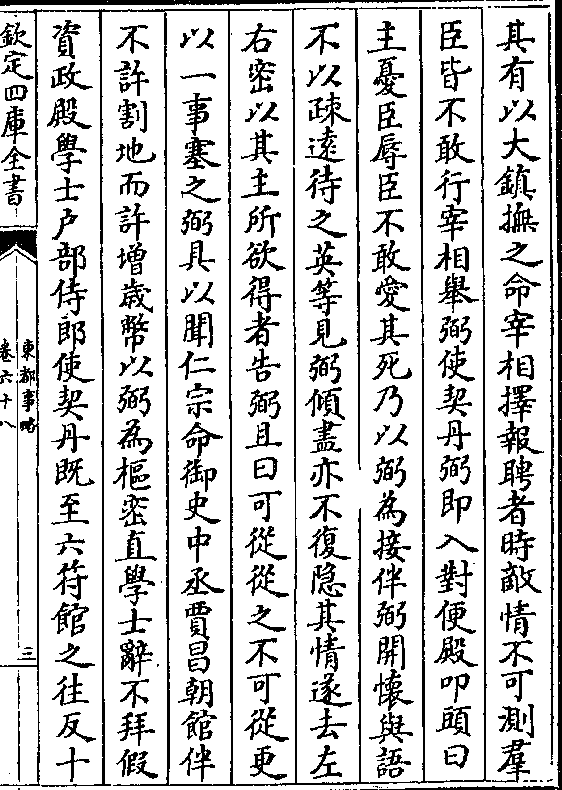 其有以大鎮撫之命宰相擇報聘者時敵情不可測羣
臣皆不敢行宰相舉弼使契丹弼即入對便殿叩頭曰
主憂臣辱臣不敢愛其死乃以弼為接伴弼開懷與語
不以疎遠待之英等見弼傾盡亦不復隐其情遂去左
右密以其主所欲得者告弼且曰可從從之不可從更
以一事塞之弼具以聞仁宗命御史中丞賈昌朝館伴
不許割地而許增歲幣以弼為樞密直學士辭不拜假
資政殿學士户部侍郎使契丹既至六符館之往反十
欽定四庫全書
東都事略
卷六十八
三